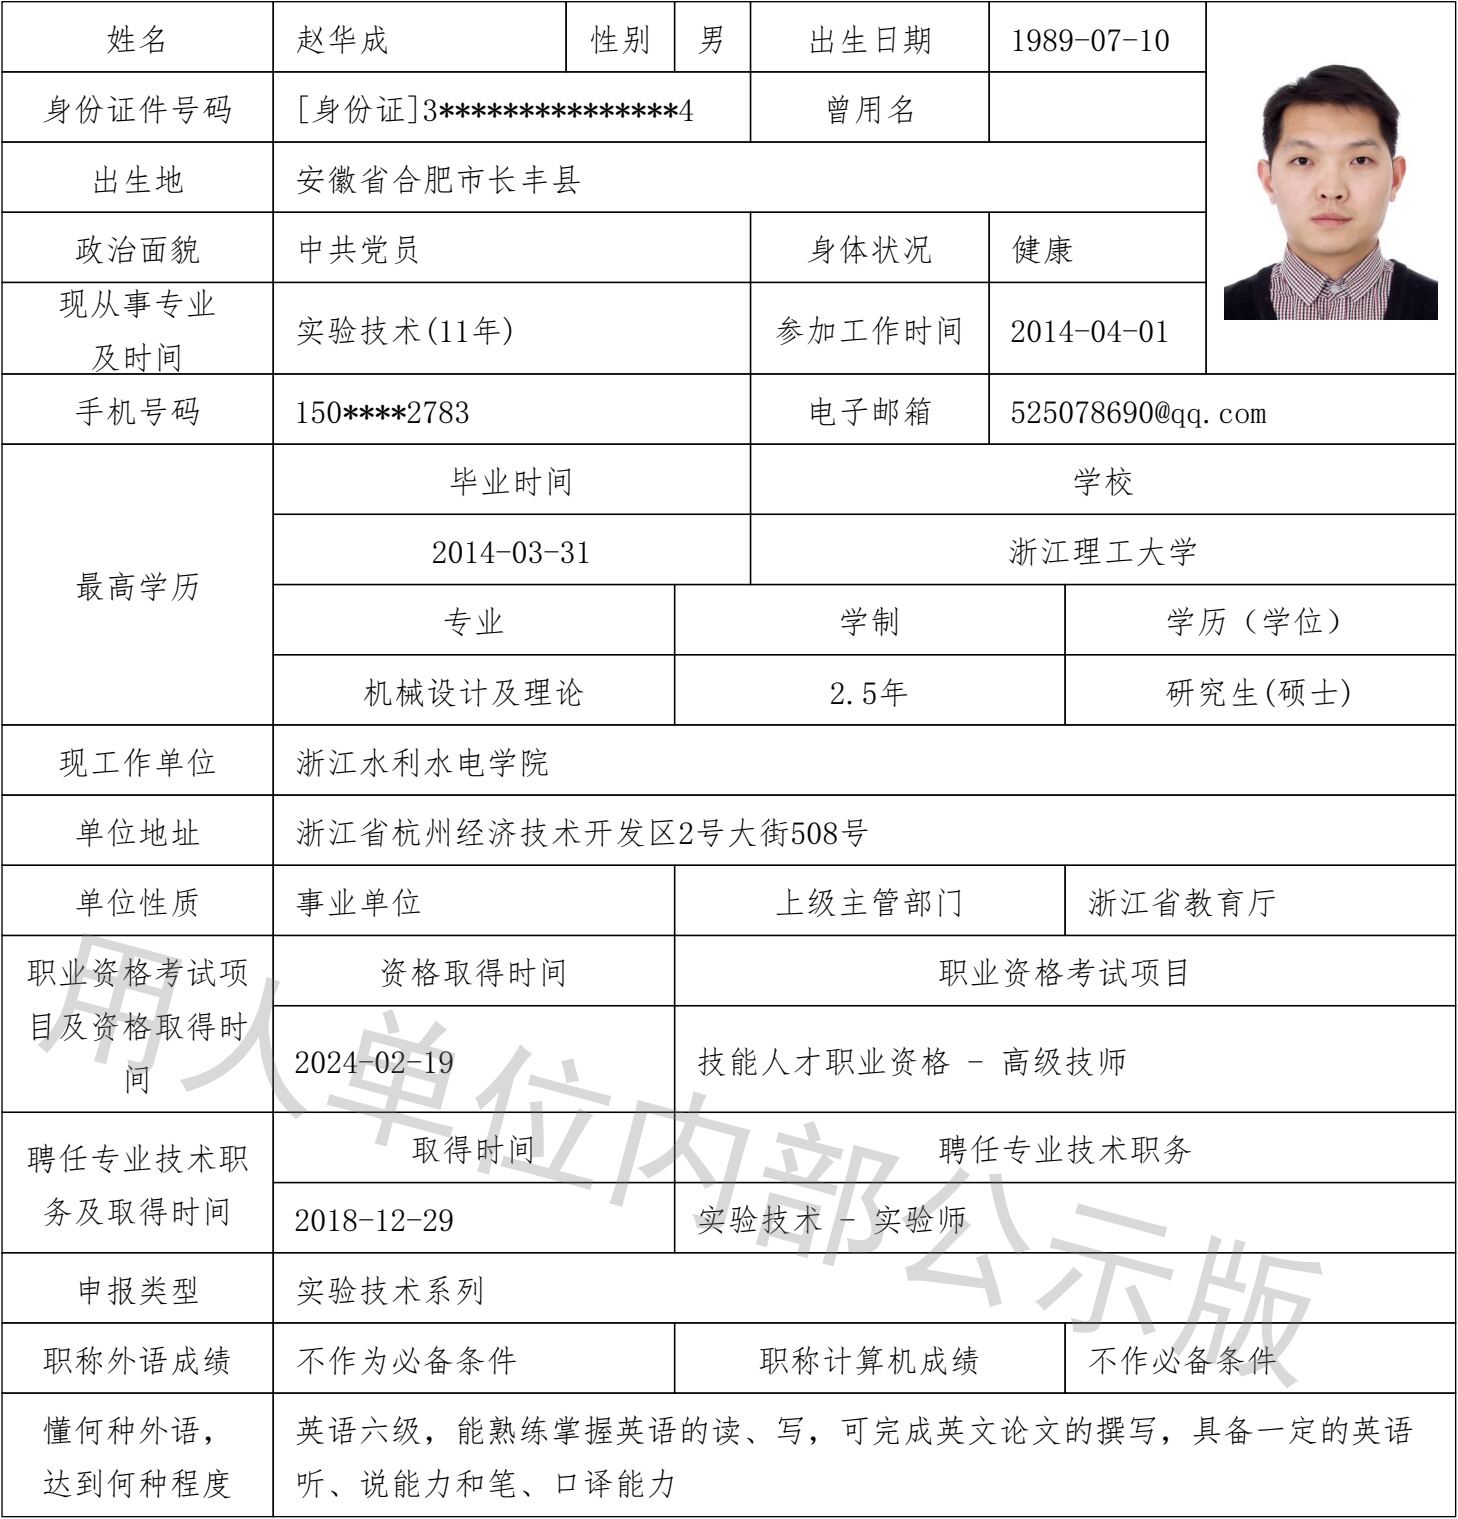 姓名 赵华成 性别 男 出生日期 1989-07-10
身份证件号码 [身份证]3***************4 曾用名
出生地 安徽省合肥市长丰县
政治面貌 中共党员 身体状况 健康
现从事专业
及时间 实验技术(11年) 参加工作时间 2014-04-01
手机号码 150****2783 电子邮箱 525078690@qq.com
最高学历
毕业时间 学校
2014-03-31 浙江理工大学
专业 学制 学历（学位）
机械设计及理论 2.5年 研究生(硕士)
现工作单位 浙江水利水电学院
单位地址 浙江省杭州经济技术开发区2号大街508号
单位性质 事业单位 上级主管部门 浙江省教育厅
职业资格考试项
目及资格取得时
间
资格取得时间 职业资格考试项目
2024-02-19 技能人才职业资格 - 高级技师
聘任专业技术职
务及取得时间
取得时间 聘任专业技术职务
2018-12-29 实验技术 - 实验师
申报类型 实验技术系列
职称外语成绩 不作为必备条件 职称计算机成绩 不作必备条件
懂何种外语，
达到何种程度
英语六级，能熟练掌握英语的读、写，可完成英文论文的撰写，具备一定的英语
听、说能力和笔、口译能力
用人单位内部公示版